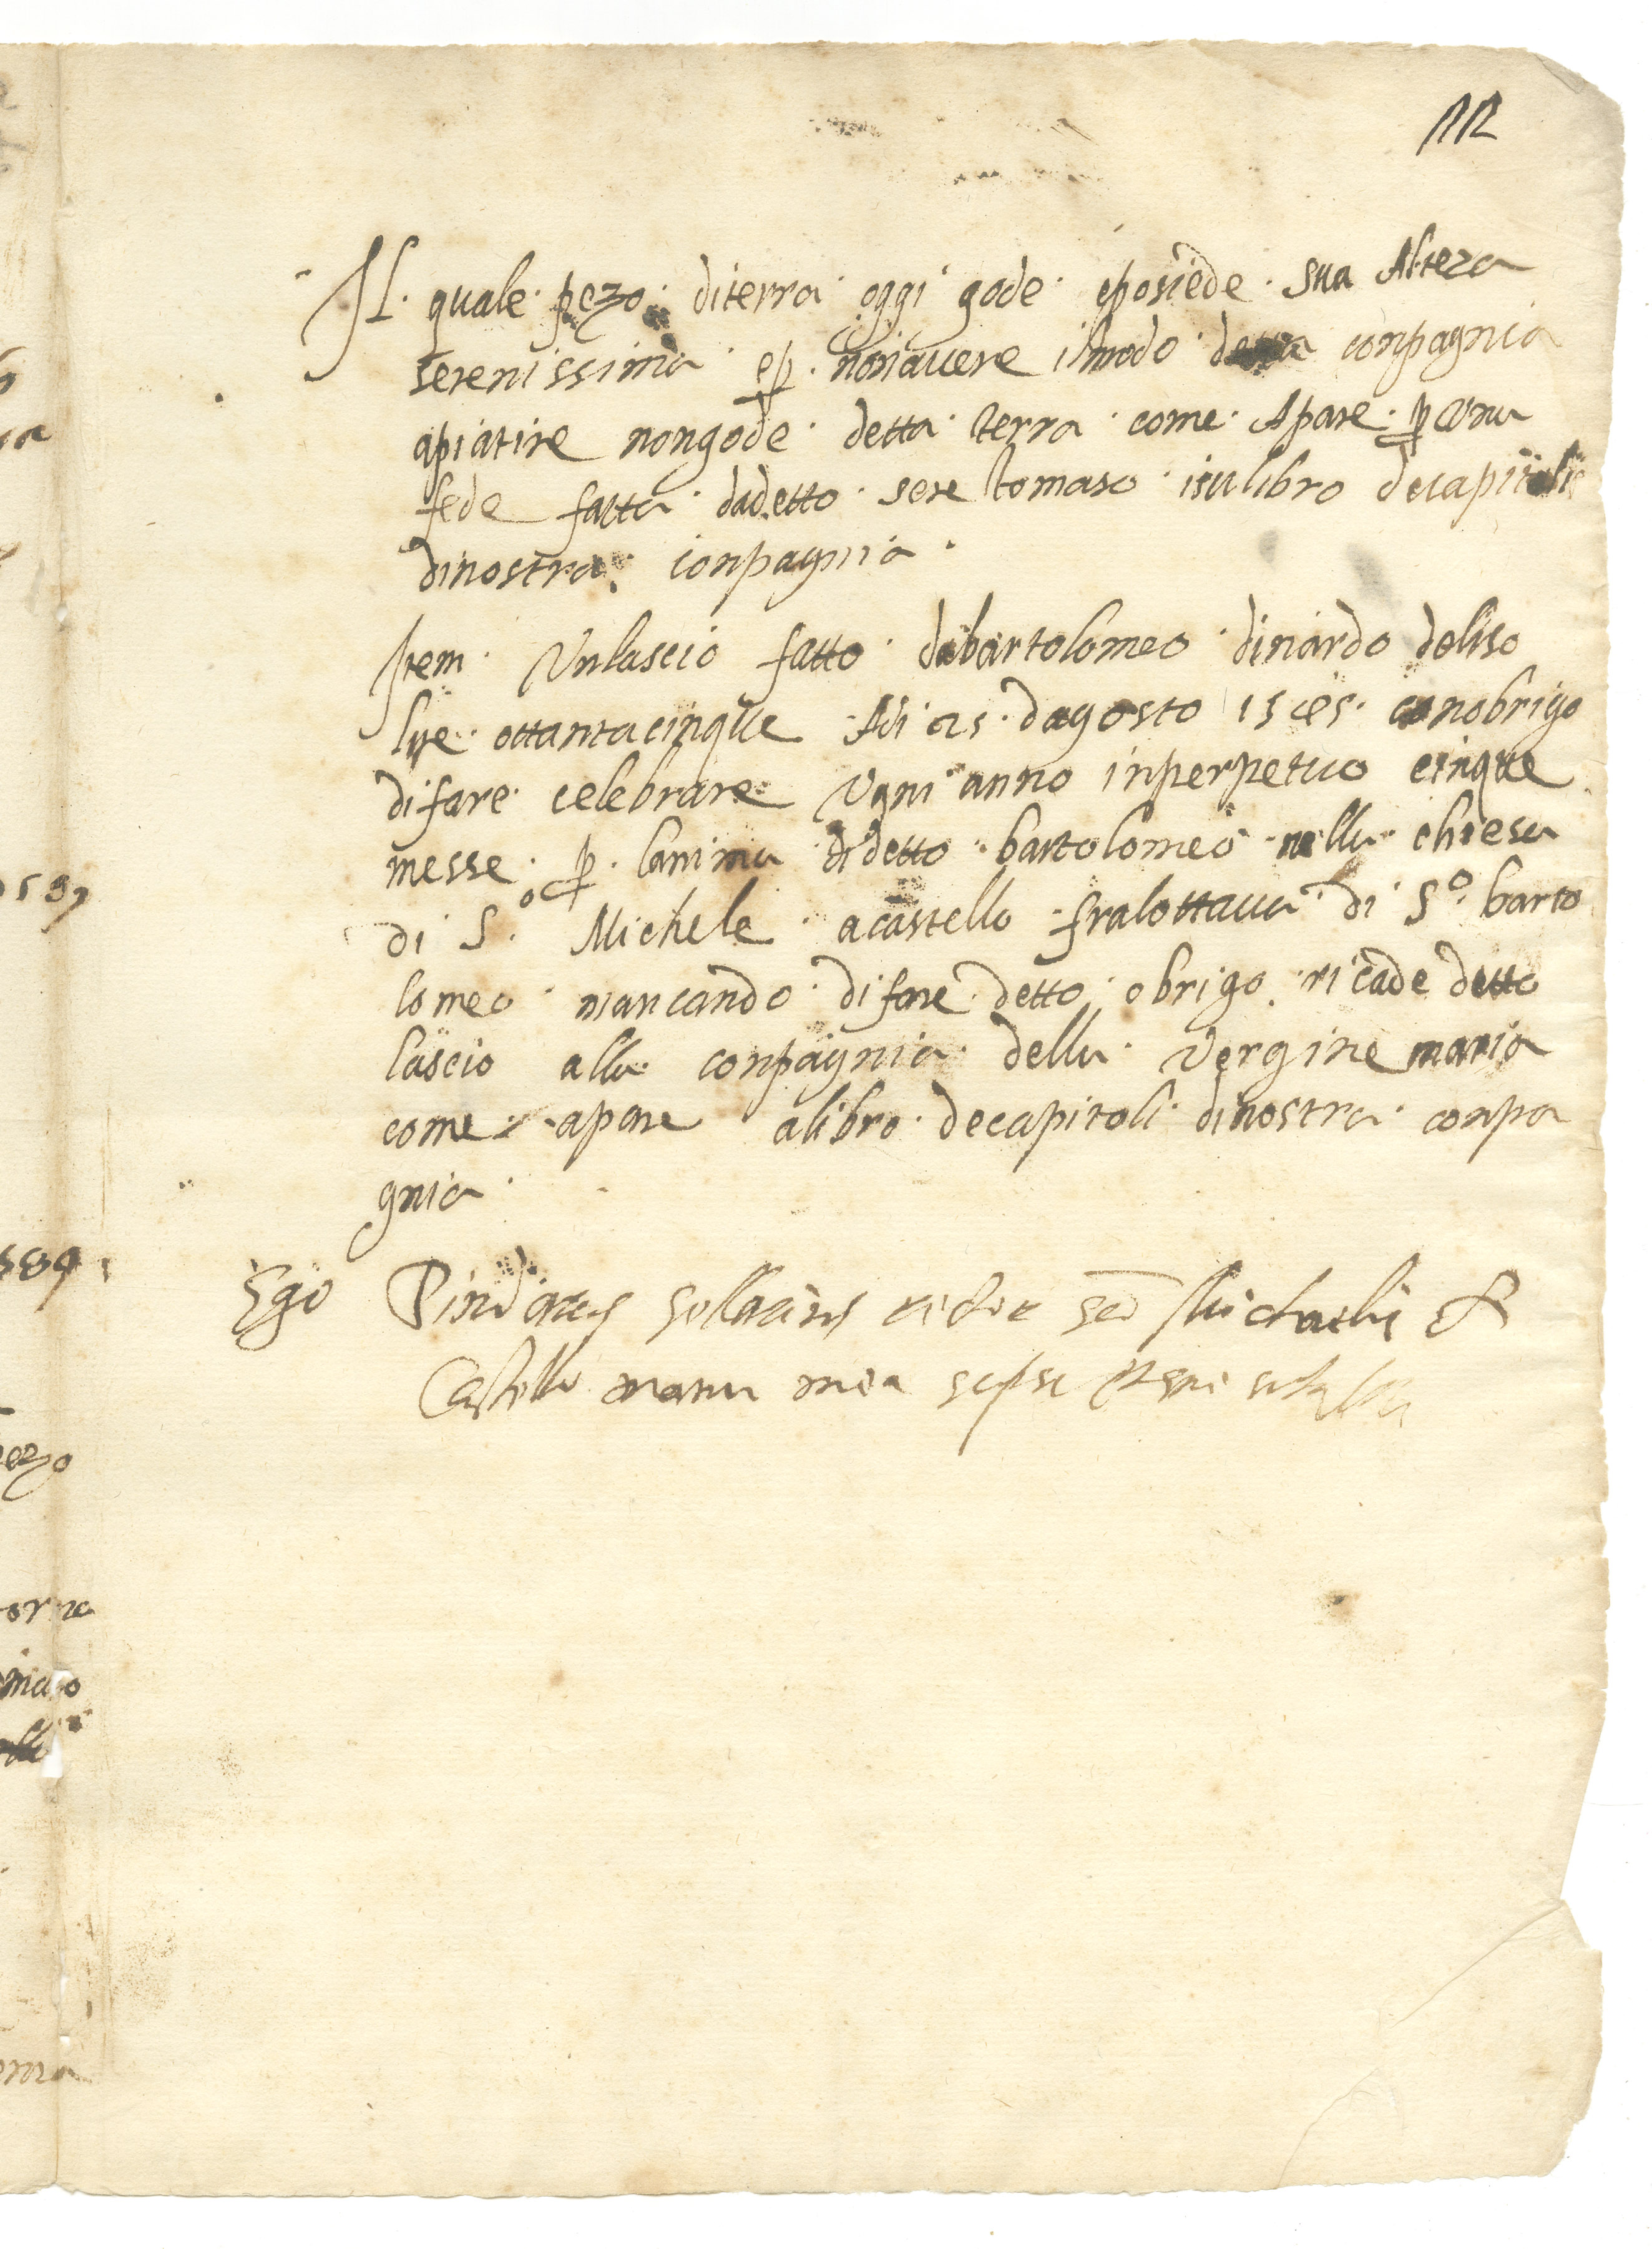 Il quale pezo diterra oggi gode eposiede sua Alteza
serenissima ep nonavere ilmodo detta conpagnia
apiatire nongode detta terra come Apare p una
fede fatta dadetto sere tomaso isulibro decapitoli
dinostra conpagnia
Item Unlascio fatto dabartolomeo dinardo
lire ottantacinque Adi 25 dagosto conobrigo
difare celebrare Ugni anno inperpetuo cinque
messe p lanima didetto bartolomeo nella chiesa
di S.o Michele acastello fralottava di S.o barto
lomeo mancando difare detto obrigo ricade detto
lascio alla conpagnia della Vergine maria
come apare alibro decapitoli dinostra conpa
gnia
Ego Pindarus rector Michaelis
Castello manu mea